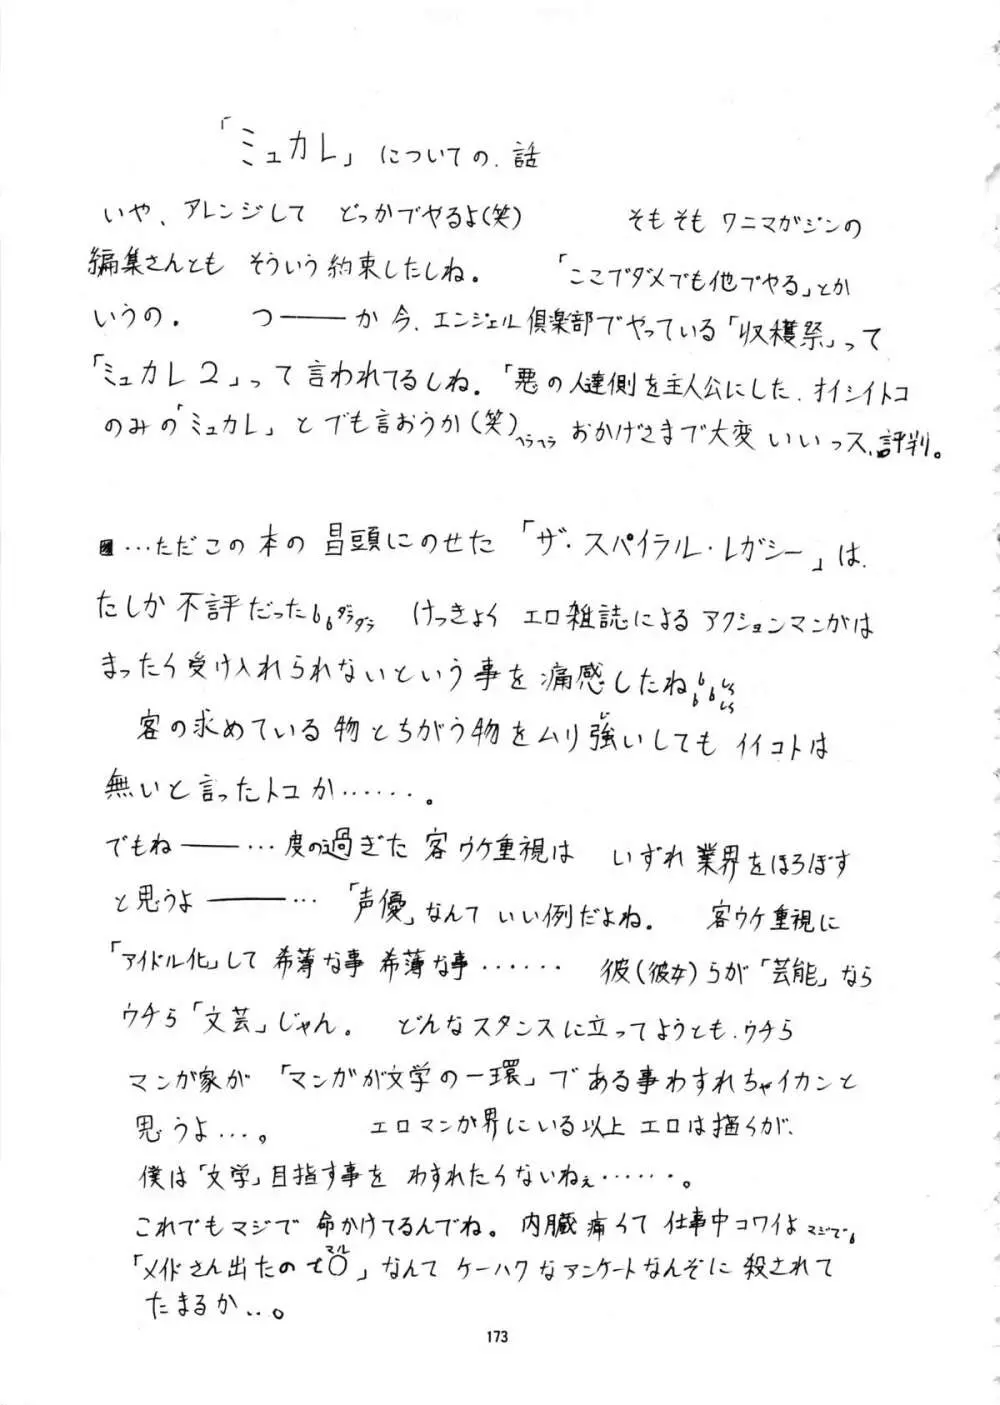 「ミュカレ」についての、話
いや、アレンジして どっかでやるよ(笑) そもそも ワニマガジンの
編集さんとも そういう約束したしね。 「ここでダメでも他でやる」とか
いうの。 つ――か今、エンジェル倶楽部でやっている「収穫祭」って
「ミュカレ2」って言われてるしね。「悪の人達側を主人公にした、オイシイトコ
のみの「ミュカレ」とでも言おうか(笑)ヘラヘラ おかげさまで大変 いいっス、評判。
…ただこの本の 冒頭にのせた 「ザ・スパイラル・レガシー」は、
たしか 不評だった ダラダラ けっきょく エロ雑誌によるアクションマンガは
まったく受け入れられないという事を痛感したね
客の求めている物とちがう物をムリ強いしても イイコトは
無いと言ったトコか……。
でもね――…度の過ぎた 客ウケ重視は いずれ業界をほろぼす
と思うよ――… 「声優」なんて いい例だよね。 客ウケ重視に
「アイドル化」して 希薄な事 希薄な事…… 彼(彼女)らが「芸能」なら
ウチら「文芸」じゃん。 どんなスタンスに立ってようとも、ウチら
マンガ家が 「マンガが文学の一環」である事わすれちゃイカンと
思うよ…。 エロマンガ界にいる以上 エロは描くが、
僕は「文学」目指す事を わすれたくないねぇ……。
これでもマジで 命かけてるんでね。内臓痛くて 仕事中コワイよ マジで
「メイドさん出たので〇マル」なんて ケーハクなアンケートなんぞに 殺されて
たまるか…。
173